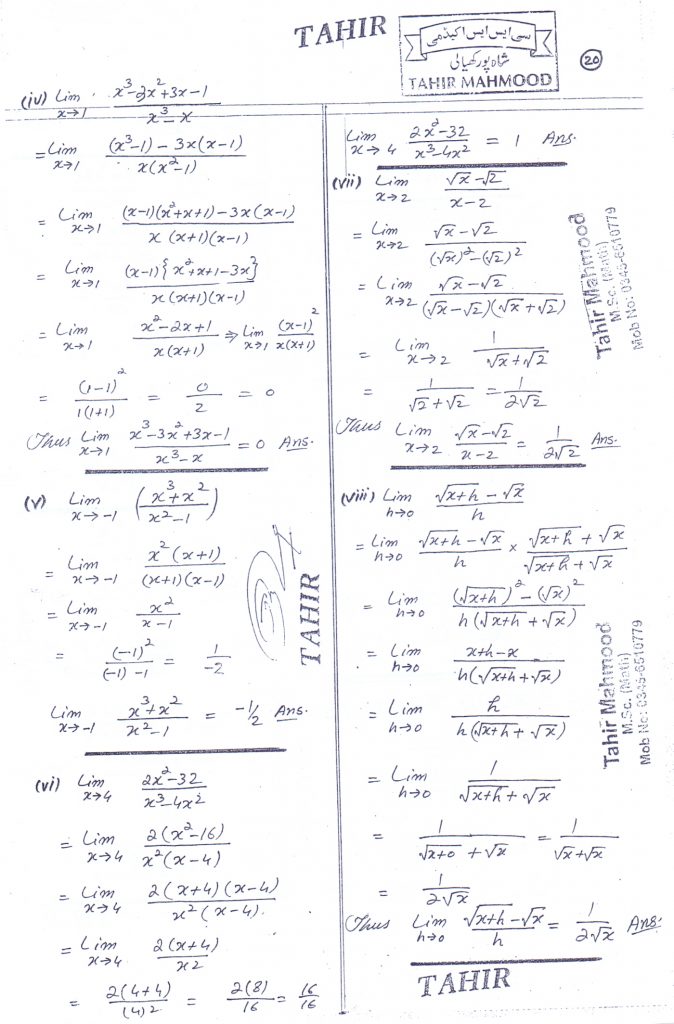 TAHIR
سی ایس ایس اکیڈمی
شاہ پور کھیالی
TAHIR MAHMOOD
20
(iv) Lim x→1 (x³-3x²+3x-1)/(x³-x)
= Lim x→1 ((x³-1) - 3x(x-1))/(x(x²-1))
= Lim x→1 ((x-1)(x²+x+1) - 3x(x-1))/(x(x+1)(x-1))
= Lim x→1 ((x-1){x²+x+1-3x})/(x(x+1)(x-1))
= Lim x→1 (x²-2x+1)/(x(x+1)) ⇒ Lim x→1 (x-1)²/(x(x+1))
= (1-1)²/(1(1+1)) = 0/2 = 0
Thus Lim x→1 (x³-3x²+3x-1)/(x³-x) = 0 Ans.
(v) Lim x→-1 ((x³+x²)/(x²-1))
= Lim x→-1 (x²(x+1))/((x+1)(x-1))
= Lim x→-1 x²/(x-1)
= (-1)²/((-1)-1) = 1/-2
Lim x→-1 (x³+x²)/(x²-1) = -1/2 Ans.
TAHIR
(vi) Lim x→4 (2x²-32)/(x³-4x²)
= Lim x→4 2(x²-16)/(x²(x-4))
= Lim x→4 2(x+4)(x-4)/(x²(x-4))
= Lim x→4 2(x+4)/x2
= 2(4+4)/(4)2 = 2(8)/16 = 16/16
Lim x→4 (2x²-32)/(x³-4x²) = 1 Ans.
(vii) Lim x→2 (√x-√2)/(x-2)
= Lim x→2 (√x-√2)/((√x)²-(√2)²)
= Lim x→2 (√x-√2)/((√x-√2)(√x+√2))
= Lim x→2 1/(√x+√2)
= 1/(√2+√2) = 1/(2√2)
Thus Lim x→2 (√x-√2)/(x-2) = 1/(2√2) Ans.
Tahir Mahmood
M.Sc. (Math)
Mob No: 0345-6510779
(viii) Lim h→0 (√x+h - √x)/h
= Lim h→0 (√x+h - √x)/h × (√x+h + √x)/(√x+h + √x)
= Lim h→0 ((√x+h)² - (√x)²)/(h(√x+h + √x))
= Lim h→0 (x+h-x)/(h(√x+h + √x))
= Lim h→0 h/(h(√x+h + √x))
= Lim h→0 1/(√x+h + √x)
= 1/(√x+0 + √x) = 1/(√x+√x)
= 1/(2√x)
Thus Lim h→0 (√x+h - √x)/h = 1/(2√x) Ans.
Tahir Mahmood
M.Sc. (Math)
Mob No: 0345-6510779
TAHIR